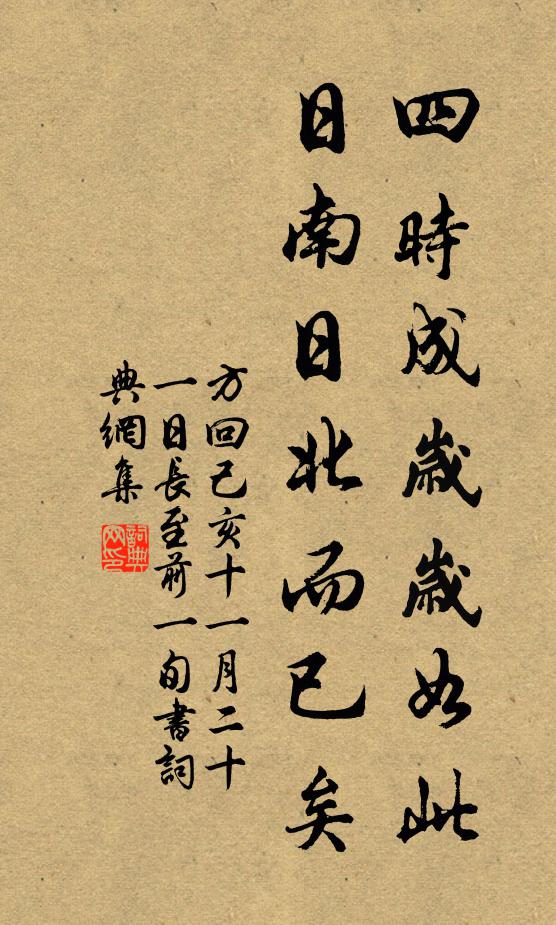 四時成歲歲如此
日南日北而已矣
方回己亥十一月二十
一日長至前一旬書詞
典網集
詞典網印